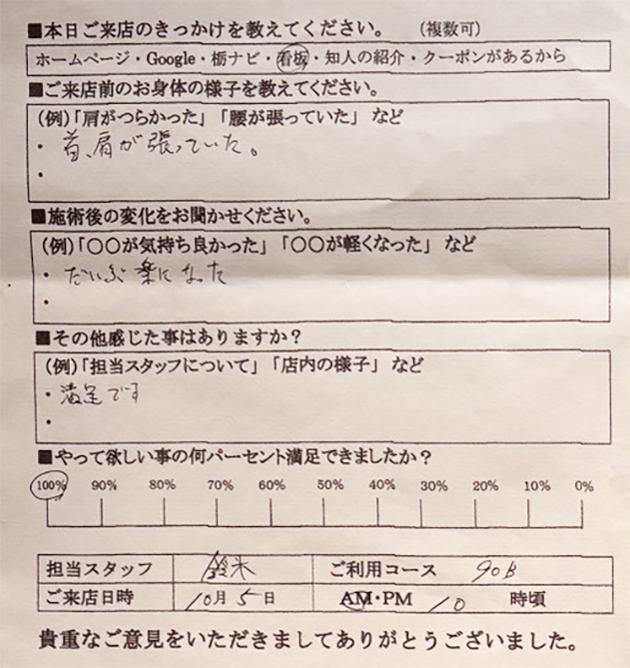 ■本日ご来店のきっかけを教えてください。 (複数可)
ホームページ・Google・栃ナビ・看板・知人の紹介・クーポンがあるから
■ご来店前のお身体の様子を教えてください。
(例)「肩がつらかった」「腰が張っていた」など
・首、肩が張っていた。
・
■施術後の変化をお聞かせください。
(例)「〇〇が気持ち良かった」「〇〇が軽くなった」など
・だいぶ楽になった
・
■その他感じた事はありますか?
(例)「担当スタッフについて」「店内の様子」など
・満足です
・
■やって欲しい事の何パーセント満足できましたか?
100% 90% 80% 70% 60% 50% 40% 30% 20% 10% 0%
担当スタッフ 鈴木 ご利用コース 90B
ご来店日時 10月5日 AM・PM 10 時頃
貴重なご意見をいただきましてありがとうございました。